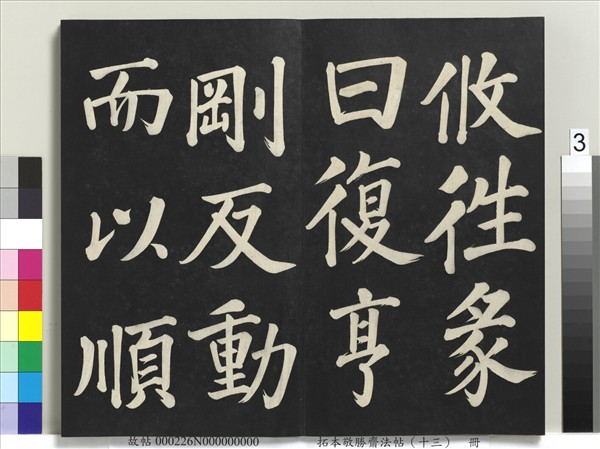 攸徃彖
曰復亨
剛反動
而以順
3
故帖 000226N000000000 拓本敬勝齋法帖（十三） 冊